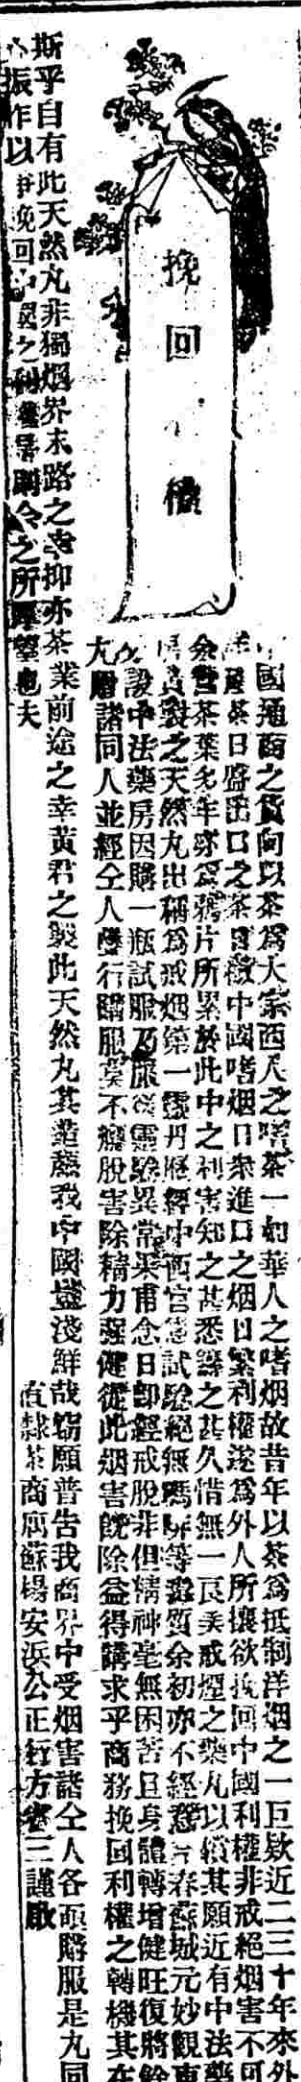 挽回 權
國通商之貨向以茶爲大宗西人之嗜茶一如華人之嗜烟故昔年以茶爲抵制洋烟之一巨欵近二三十年來外
茶日盛出口之茶日 中國嗜烟日衆進口之烟日繁利權遂爲外人所攘欲挽回中國利權非戒絕烟害不可
余營茶葉多年亦爲鴉片所累於此中之利害知之甚悉籌之甚久惜無一良美戒煙之藥丸以償其願近有中法藥
房黃製之天然丸出稱爲戒烟第一靈丹歷經中西官 試驗絕無嗎啡等毒質余初亦不經意今春蘇城元妙觀東
設中法藥房因購一瓶試服乃 靈驗異常果甫念日卽經戒脫非但精神毫無困苦且身體轉增健旺復將餘
丸贈諸同人並經仝人等行購服莫不癮脫害除精力强健從此烟害旣除益得講求乎商務挽回利權之轉機其在
斯乎自有此天然丸非獨烟界末路之幸抑亦茶業前途之幸黃君之製此天然丸其造蔭我中國豈淺鮮哉竊願普告我商界中受烟害諸仝人各 購服是丸同
振作以 挽回 之利 令之所厚望也夫
直隸茶商 蘇楊安浜公正行方 三謹啟